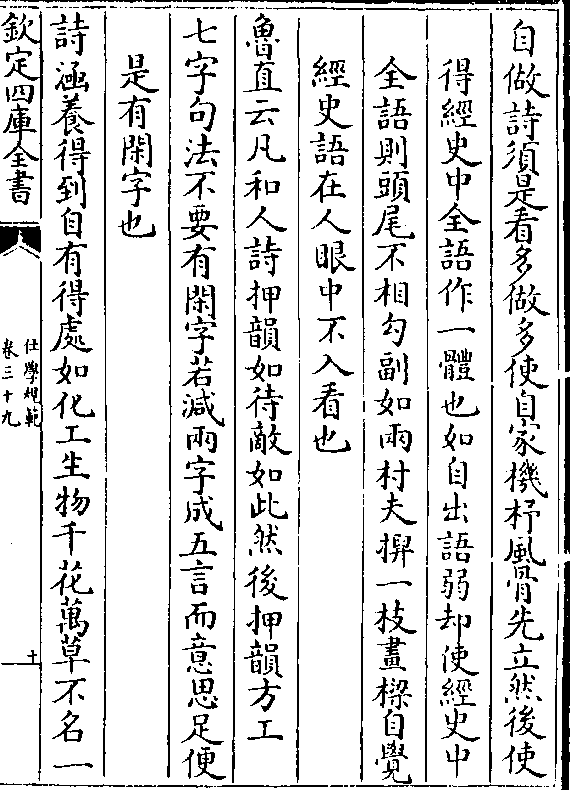 自做詩須是看多做多使自家機杼風骨先立然後使
得經史中全語作一體也如自出語弱却使經史中
全語則頭尾不相勾副如兩村夫㨽一枝畫樑自覺
經史語在人眼中不入看也
魯直云凡和人詩押韻如待敵如此然後押韻方工
七字句法不要有閑字若減兩字成五言而意思足便
是有閑字也
詩涵養得到自有得處如化工生物千花萬草不名一
欽定四庫全書
仕學規範
卷三十九
十